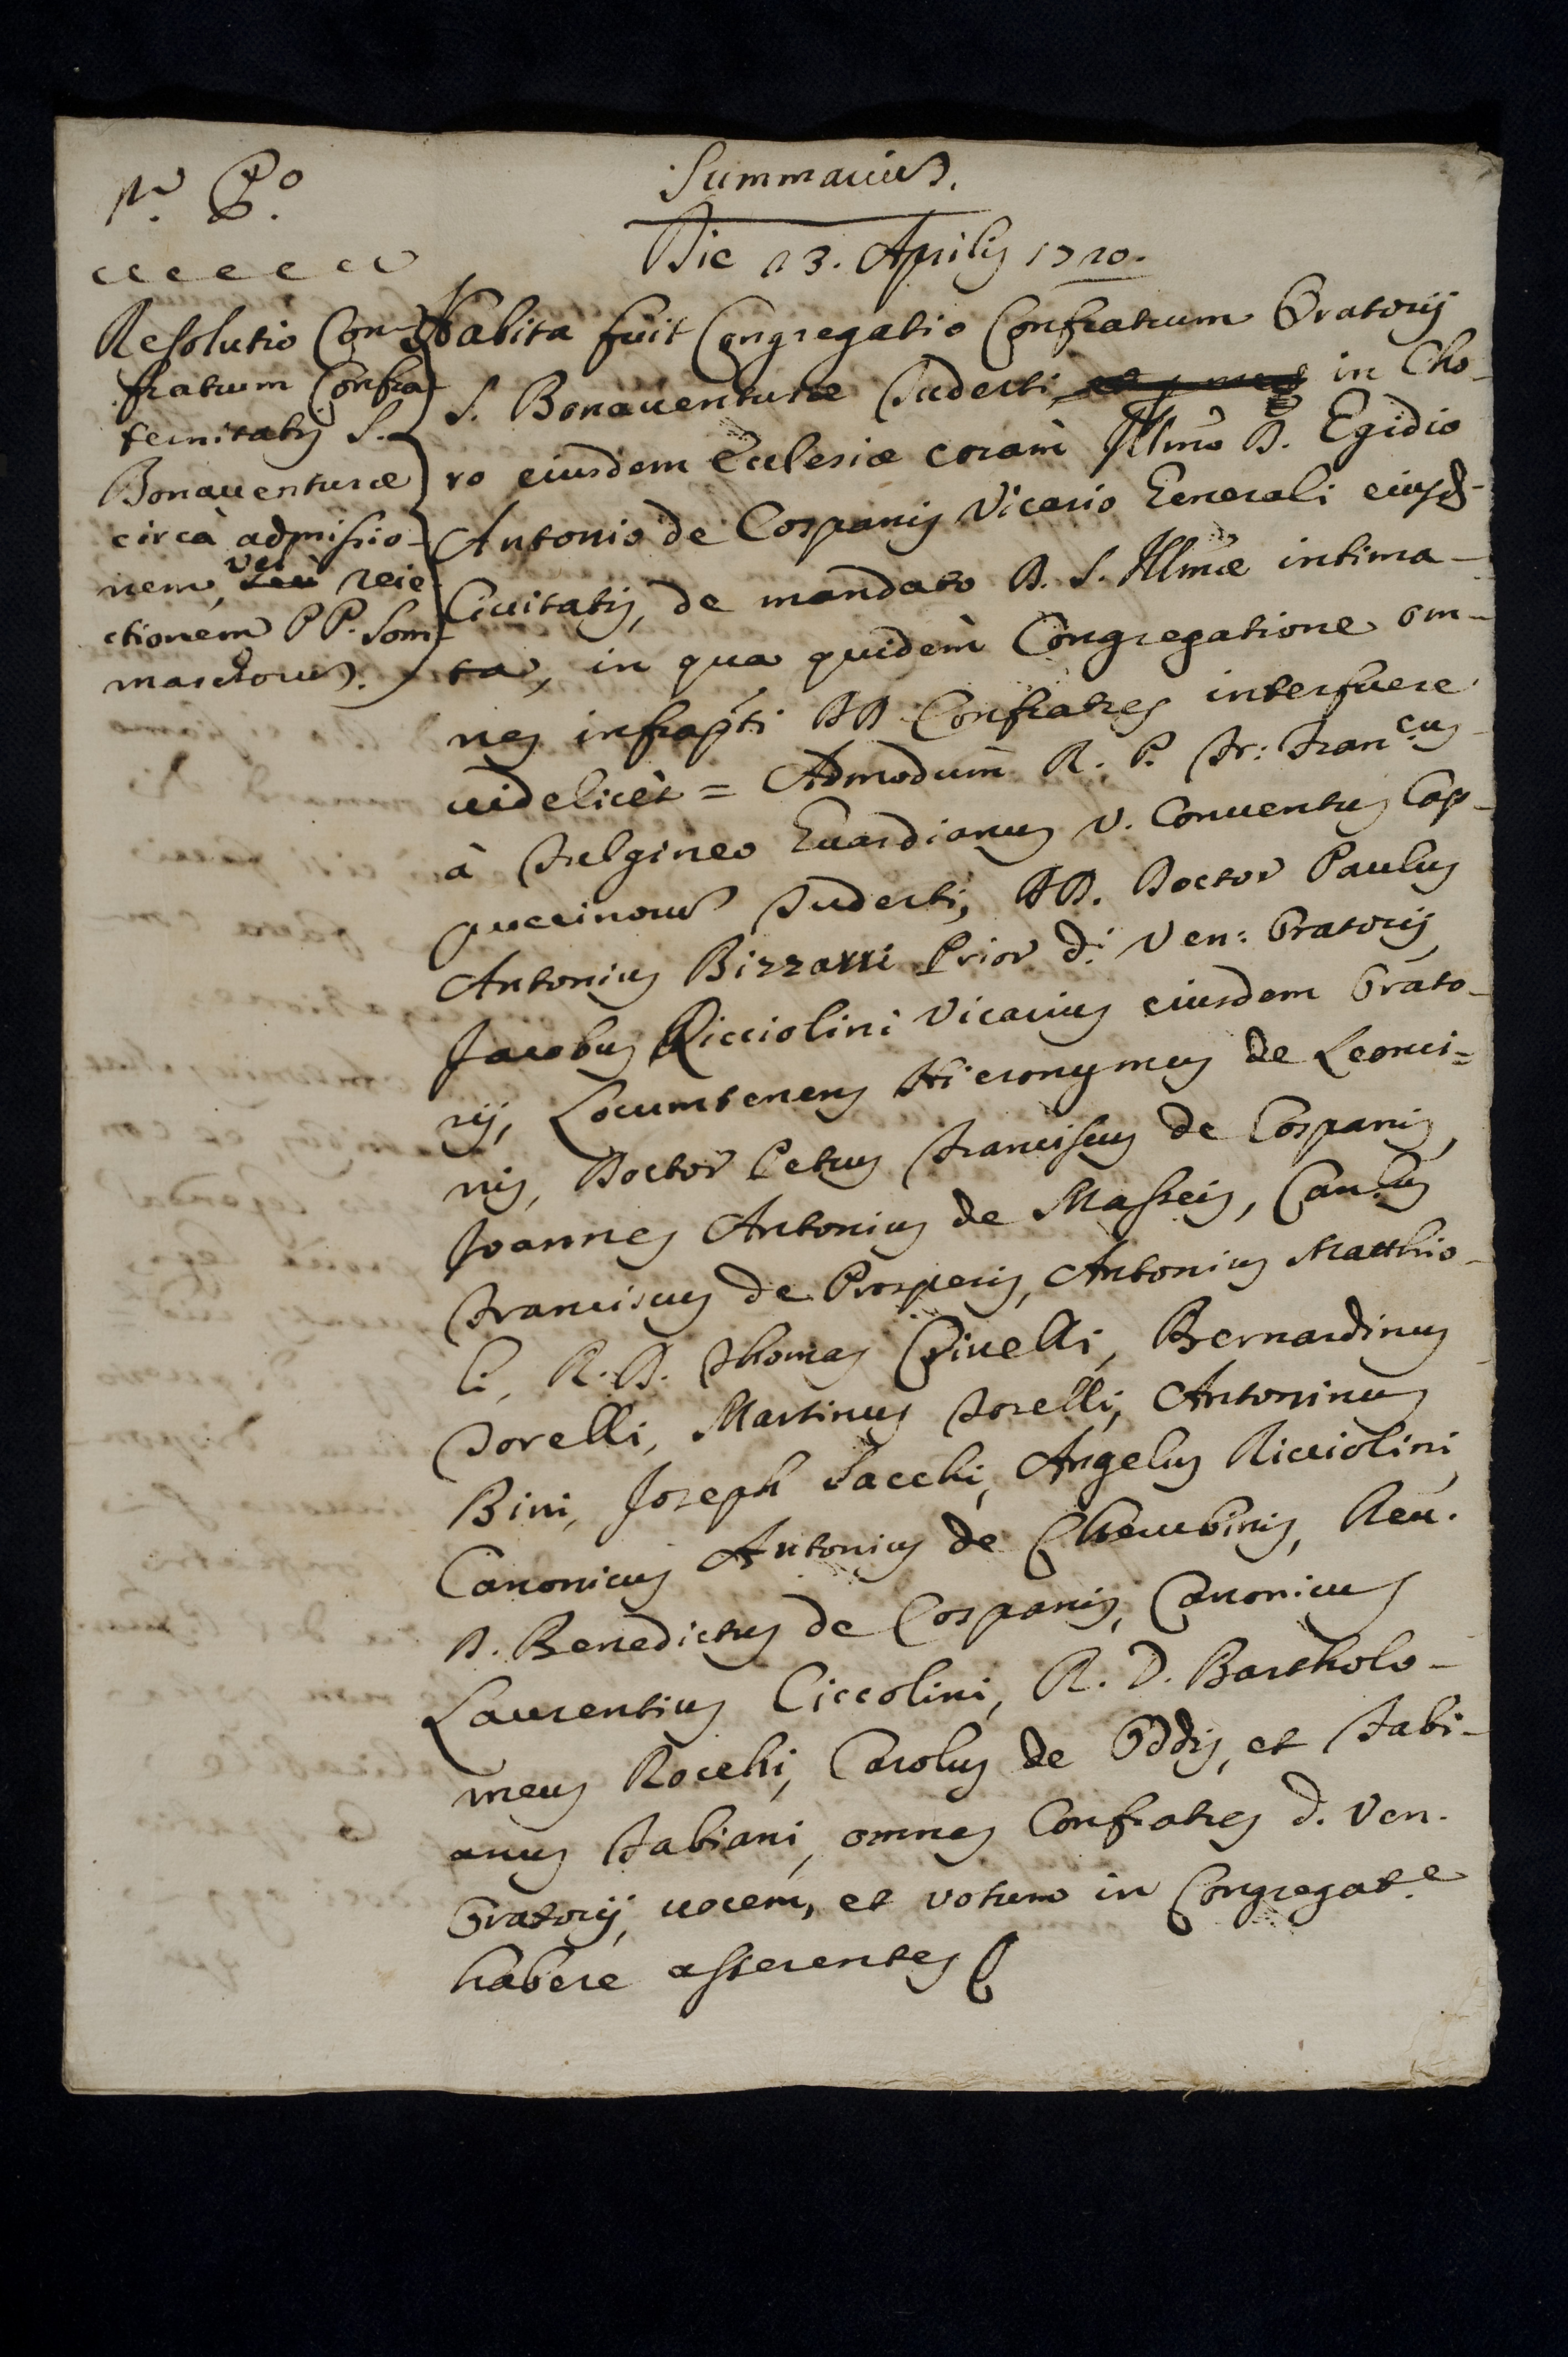 N.º P.º
Summarium.
Die 23. Aprilis 1720.
Resolutio Con-
fratrum Confra
ternitatis S.
Bonauenturæ
circà admissio-
nem, vel reie
ctionem PP. Som-
maschorum.
Habita fuit Congregatio Confratrum Oratorij
S. Bonauenturæ Tuderti, in Cho-
ro eiusdem Ecclesiæ coram Illmo D. Egidio
Antonio de Cospanis Vicario Generali eiusd.
Ciuitatis, de mandato D. S. Illmæ intima-
ta, in qua quidem Congregatione om-
nes infrapti DD. Confratres interfuere
uidelicèt = Admodum R. P. Fr: Fran.cus
à Fulgineo Guardianus V. Conuentus Cap-
puccinorum Tuderti, DD. Doctor Paulus
Antonius Bizzarri Prior d.i Ven: Oratorij,
Jacobus Ricciolini Vicarius eiusdem Orato-
rij, Locumtenens Hieronymus de Leonci=
nis, Doctor Petrus Franciscus de Cospanis,
Joannes Antonius de Masseis, Carolus
Franciscus de Prosperis, Antonius Matthio-
li, R. D. Thomas Criuelli, Bernardinus
Torelli, Martinus Torelli, Antoninus
Bini, Joseph Sacchi, Angelus Ricciolini,
Canonicus Antonius de Cherubinis, Reu.
D. Benedictus de Cospanis, Canonicus
Laurentius Ciccolini, R. D. Bartholo-
meus Rocchi, Carolus de Oddis, et Fabi-
anus Fabiani, omnes Confratres d. Ven.
Oratorij, uocem, et votum in Congregat.e
habere asserentes